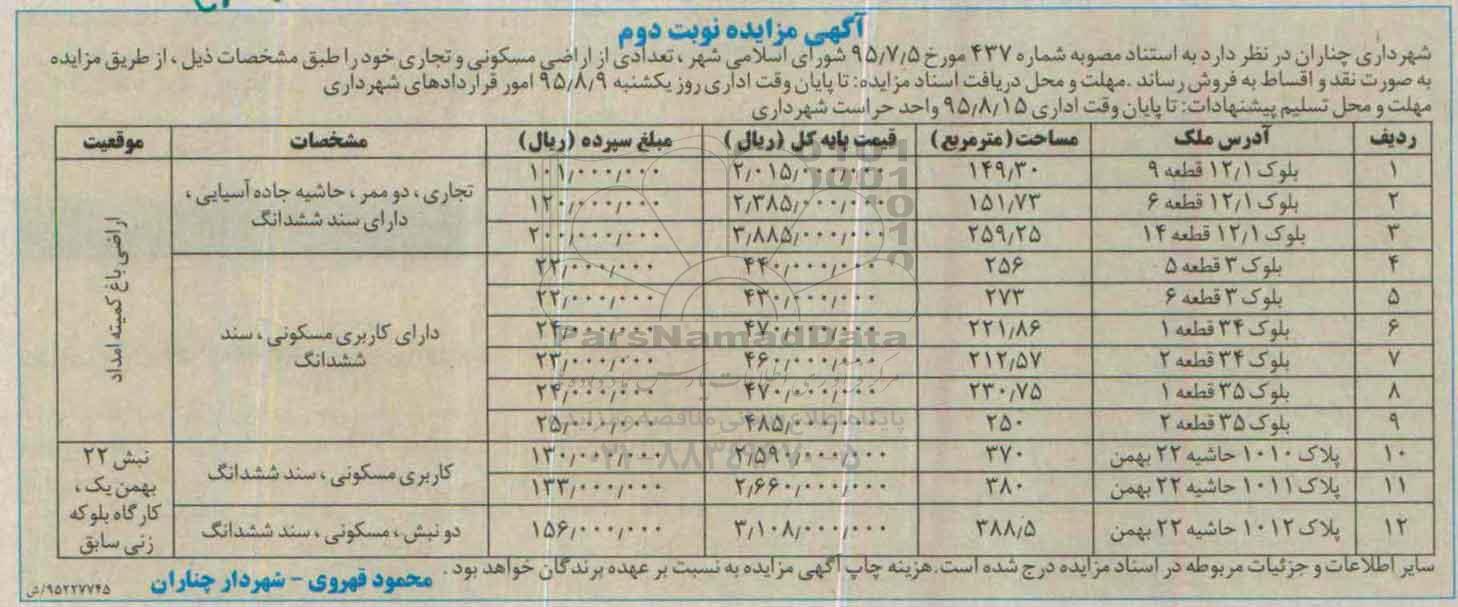 آگهی مزایده نوبت دوم
شهرداری چناران در نظر دارد به استناد مصوبه شماره ۴۳۷ مورخ ۹۵/۷/۵ شورای اسلامی شهر ، تعدادی از اراضی مسکونی و تجاری خود را طبق مشخصات ذیل ، از طریق مزایده
به صورت نقد و اقساط به فروش رساند .مهلت و محل دریافت اسناد مزایده: تا پایان وقت اداری روز یکشنبه ۹۵/۸/۹ امور قراردادهای شهرداری
مهلت و محل تسلیم پیشنهادات: تا پایان وقت اداری ۹۵/۸/۱۵ واحد حراست شهرداری
ردیف آدرس ملک مساحت(مترمربع) قیمت پایه کل (ریال) مبلغ سپرده (ریال) مشخصات موقعیت
۱ بلوک ۱۲٫۱ قطعه ۹ ۱۴۹٫۳۰ ۲٫۰۱۵٫۰۰۰٫۰۰۰ ۱۰۱٫۰۰۰٫۰۰۰
۲ بلوک ۱۲٫۱ قطعه ۶ ۱۵۱٫۷۳ ۲٫۳۸۵٫۰۰۰٫۰۰۰ ۱۲۰٫۰۰۰٫۰۰۰
۳ بلوک ۱۲٫۱ قطعه ۱۴ ۲۵۹٫۲۵ ۳٫۸۸۵٫۰۰۰٫۰۰۰ ۲۰۰٫۰۰۰٫۰۰۰
تجاری ، دو ممر ، حاشیه جاده آسیایی ،
دارای سند ششدانگ
۴ بلوک ۳ قطعه ۵ ۲۵۶ ۴۴۰٫۰۰۰٫۰۰۰ ۲۲٫۰۰۰٫۰۰۰
۵ بلوک ۳ قطعه ۶ ۲۷۳ ۴۳۰٫۰۰۰٫۰۰۰ ۲۲٫۰۰۰٫۰۰۰
۶ بلوک ۳۴ قطعه ۱ ۲۲۱٫۸۶ ۴۷۰٫۰۰۰٫۰۰۰ ۲۴٫۰۰۰٫۰۰۰
۷ بلوک ۳۴ قطعه ۲ ۲۱۲٫۵۷ ۴۶۰٫۰۰۰٫۰۰۰ ۲۳٫۰۰۰٫۰۰۰
۸ بلوک ۳۵ قطعه ۱ ۲۳۰٫۷۵ ۴۷۰٫۰۰۰٫۰۰۰ ۲۴٫۰۰۰٫۰۰۰
۹ بلوک ۳۵ قطعه ۲ ۲۵۰ ۴۸۵٫۰۰۰٫۰۰۰ ۲۵٫۰۰۰٫۰۰۰
دارای کاربری مسکونی ، سند
ششدانگ
اراضی باغ کمیته امداد
۱۰ پلاک ۱۰۱۰ حاشیه ۲۲ بهمن ۳۷۰ ۲٫۵۹۰٫۰۰۰٫۰۰۰ ۱۳۰٫۰۰۰٫۰۰۰
۱۱ پلاک ۱۰۱۱ حاشیه ۲۲ بهمن ۳۸۰ ۲٫۶۶۰٫۰۰۰٫۰۰۰ ۱۳۳٫۰۰۰٫۰۰۰
کاربری مسکونی ، سند ششدانگ
۱۲ پلاک ۱۰۱۲ حاشیه ۲۲ بهمن ۳۸۸/۵ ۳٫۱۰۸٫۰۰۰٫۰۰۰ ۱۵۶٫۰۰۰٫۰۰۰ دو نبش ، مسکونی ، سند ششدانگ
نبش ۲۲
بهمن یک ،
کارگاه بلوکه
زنی سابق
سایر اطلاعات و جزئیات مربوطه در اسناد مزایده درج شده است.هزینه چاپ آگهی مزایده به نسبت بر عهده برندگان خواهد بود .
محمود قهروی - شهردار چناران
۹۵۲۲۷۷۴۵/ش
ParsNamadData